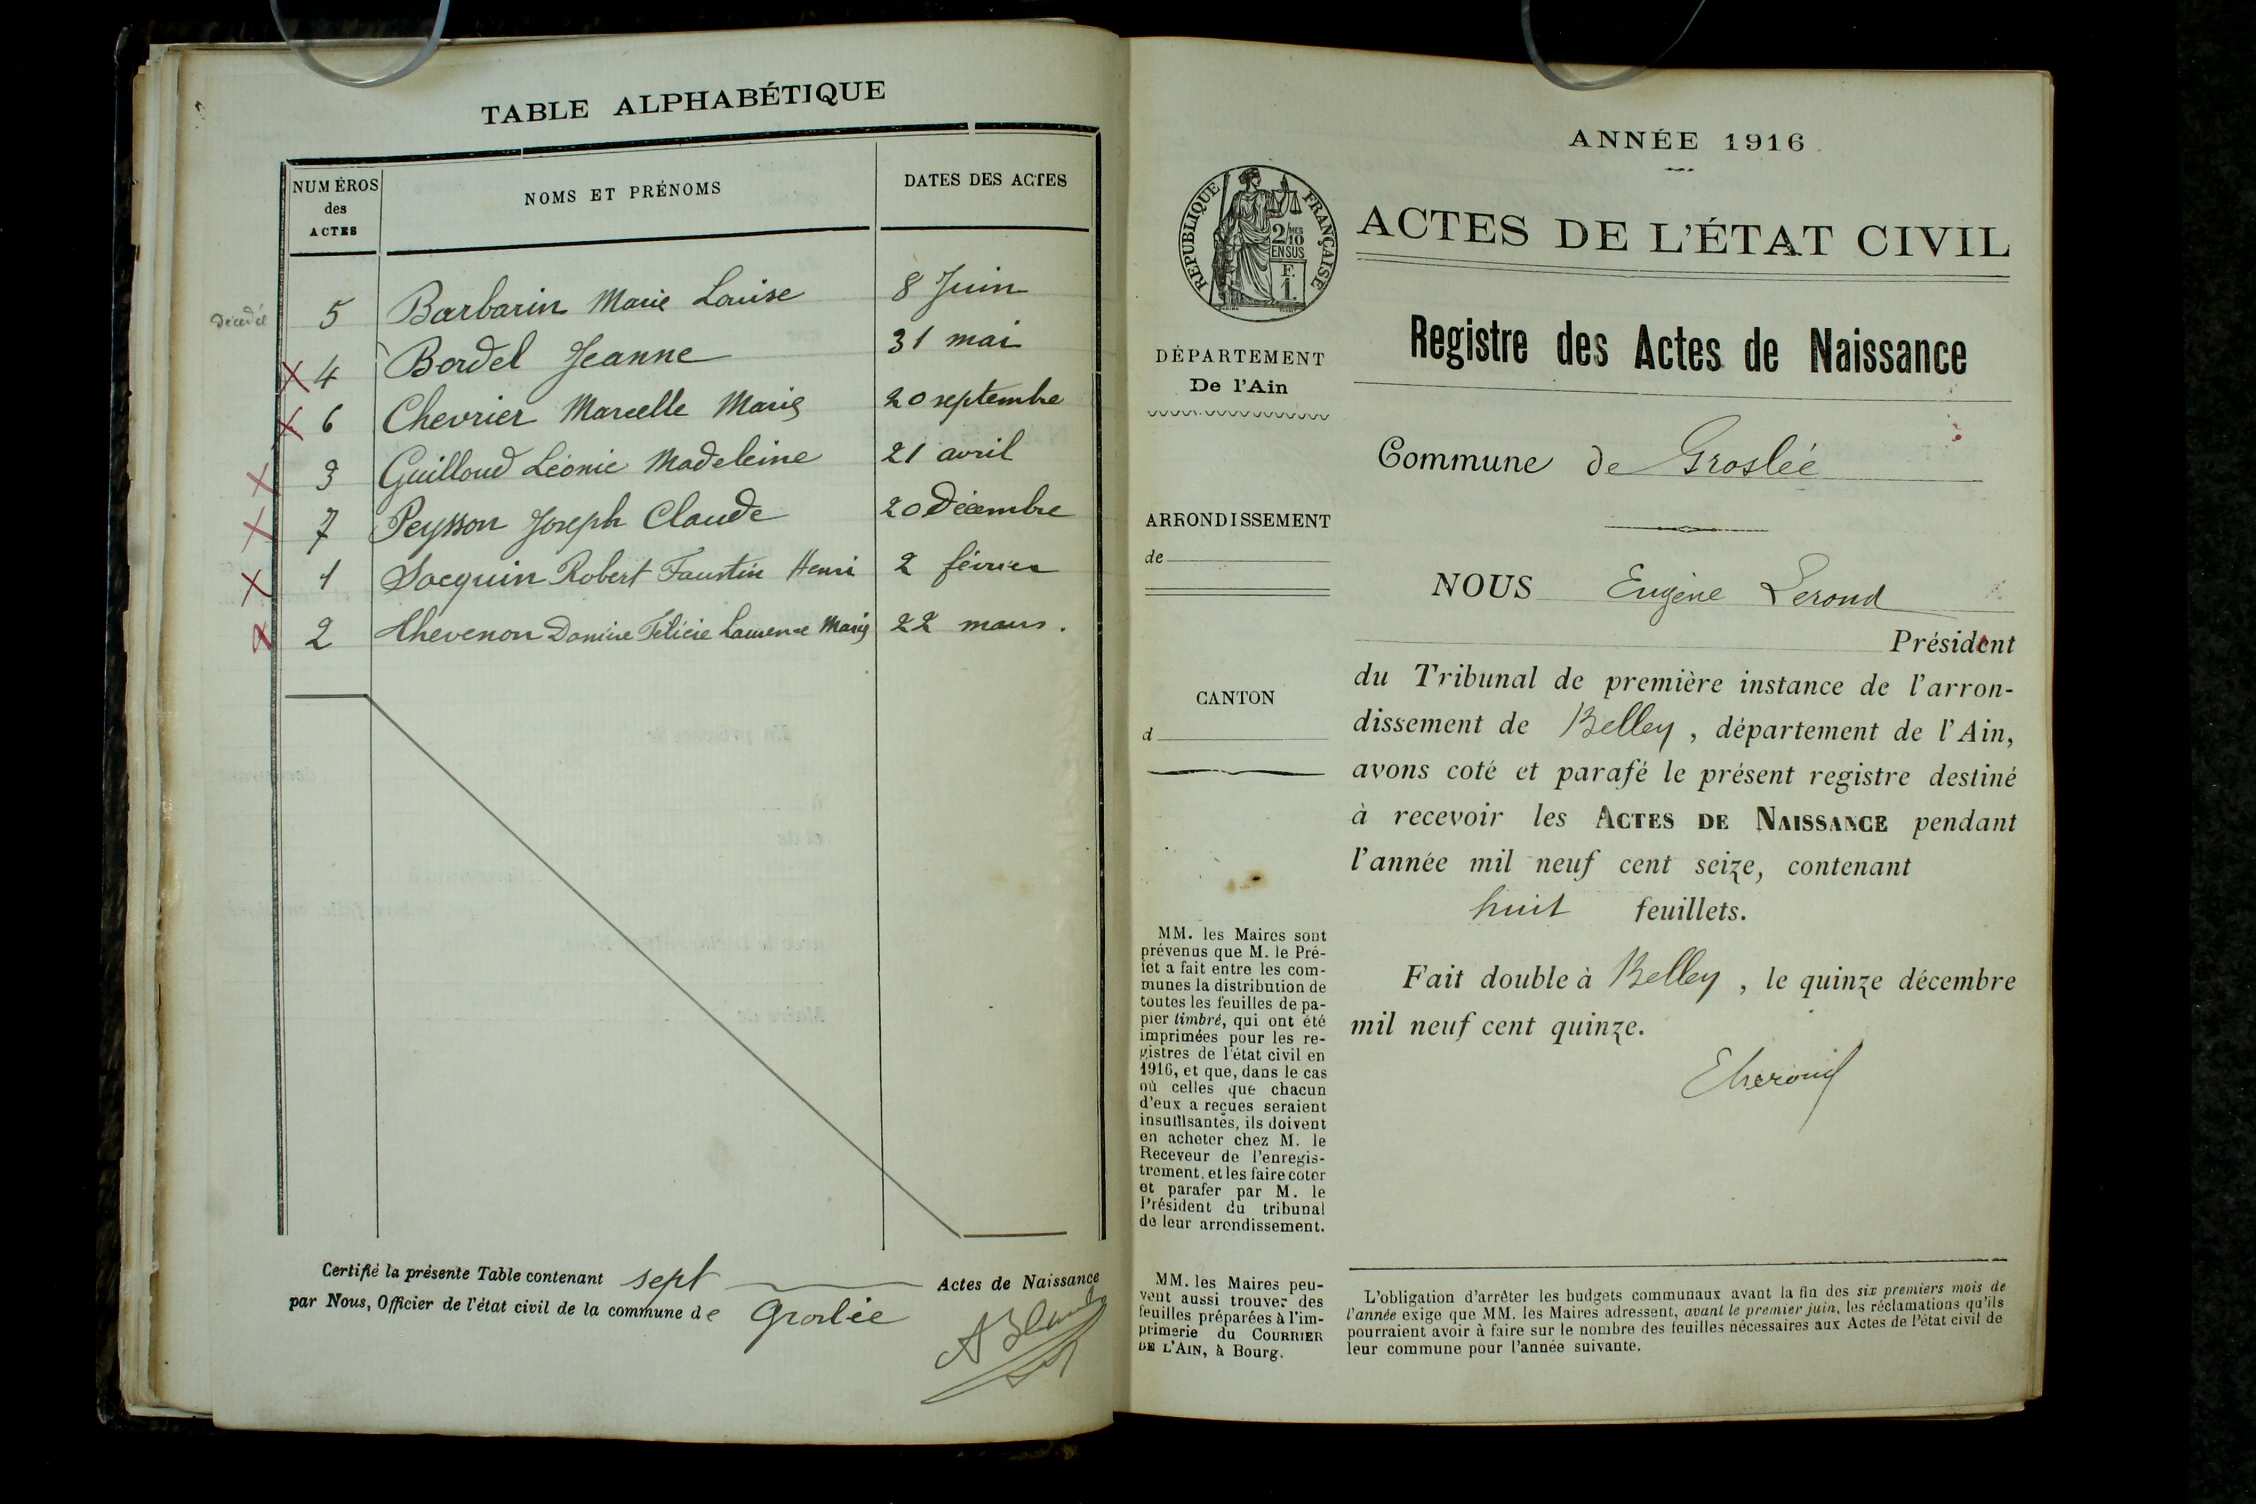 TABLE ALPHABÉTIQUE
NUMÉROS
des
ACTES
NOMS ET PRÉNOMS
DATES DES ACTES
décédée 5 Barbarin Marie Louise 8 Juin
X 4 Bordel Jeanne 31 mai
X 6 Chevrier Marcelle Marie 20 septembre
X 3 Guilloud Léonie Madeleine 21 avril
X 7 Peysson Joseph Claude 20 Décembre
X 1 Socquin Robert Faustin Henri 2 février
X 2 Thevenon Félicie Laurence Marie 22 mars.
Certifié la présente Table contenant sept Actes de Naissance
par Nous, Officier de l'état civil de la commune de Groslée
ANNÉE 1916
RÉPUBLIQUE FRANÇAISE
2/10 MES
EN SUS
F.
1.
ACTES DE L'ÉTAT CIVIL
DÉPARTEMENT
De l'Ain
ARRONDISSEMENT
de
CANTON
d
MM. les Maires sont
prévenus que M. le Pré-
fet a fait entre les com-
munes la distribution de
toutes les feuilles de pa-
pier timbré, qui ont été
imprimées pour les re-
gistres de l'état civil en
1916, et que, dans le cas
où celles que chacun
d'eux a reçues seraient
insuffisantes, ils doivent
en acheter chez M. le
Receveur de l'enregis-
trement, et les faire coter
et parafer par M. le
Président du tribunal
de leur arrondissement.
MM. les Maires peu-
vent aussi trouver des
feuilles préparées à l'im-
primerie du COURRIER
DE L'AIN, à Bourg.
Registre des Actes de Naissance
Commune de Groslée
NOUS Eugène Lerond
Président
du Tribunal de première instance de l'arron-
dissement de Belley, département de l'Ain,
avons coté et parafé le présent registre destiné
à recevoir les ACTES DE NAISSANCE pendant
l'année mil neuf cent seize, contenant
huit feuillets.
Fait double à Belley, le quinze décembre
mil neuf cent quinze.
L'obligation d'arrêter les budgets communaux avant la fin des six premiers mois de
l'année exige que MM. les Maires adressent, avant le premier juin, les réclamations qu'ils
pourraient avoir à faire sur le nombre des feuilles nécessaires aux Actes de l'état civil de
leur commune pour l'année suivante.